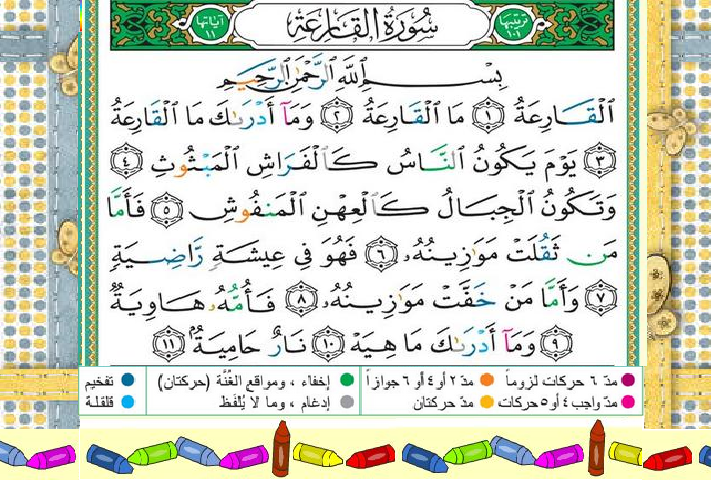 ترتيبها ١٠١ سُورَةُ القَارِعَةِ آياتها ١١
بِسْمِ ٱللَّهِ ٱلرَّحْمَٰنِ ٱلرَّحِيمِ
ٱلْقَارِعَةُ ١ مَا ٱلْقَارِعَةُ ٢ وَمَآ أَدْرَىٰكَ مَا ٱلْقَارِعَةُ
٣ يَوْمَ يَكُونُ ٱلنَّاسُ كَٱلْفَرَاشِ ٱلْمَبْثُوثِ ٤
وَتَكُونُ ٱلْجِبَالُ كَٱلْعِهْنِ ٱلْمَنفُوشِ ٥ فَأَمَّا
مَن ثَقُلَتْ مَوَٰزِينُهُۥ ٦ فَهُوَ فِى عِيشَةٍ رَّاضِيَةٍ
٧ وَأَمَّا مَنْ خَفَّتْ مَوَٰزِينُهُۥ ٨ فَأُمُّهُۥ هَاوِيَةٌ
٩ وَمَآ أَدْرَىٰكَ مَا هِيَهْ ١٠ نَارٌ حَامِيَةٌۢ ١١
مدّ ٦ حركات لزوماً مدّ ٢ أو ٤ أو ٦ جوازاً إخفاء ، ومواقع الغُنَّة (حركتان) تفخيم
مدّ واجب ٤ أو ٥ حركات مدّ حركتان إدغام ، وما لا يُلفَظ قلقلة